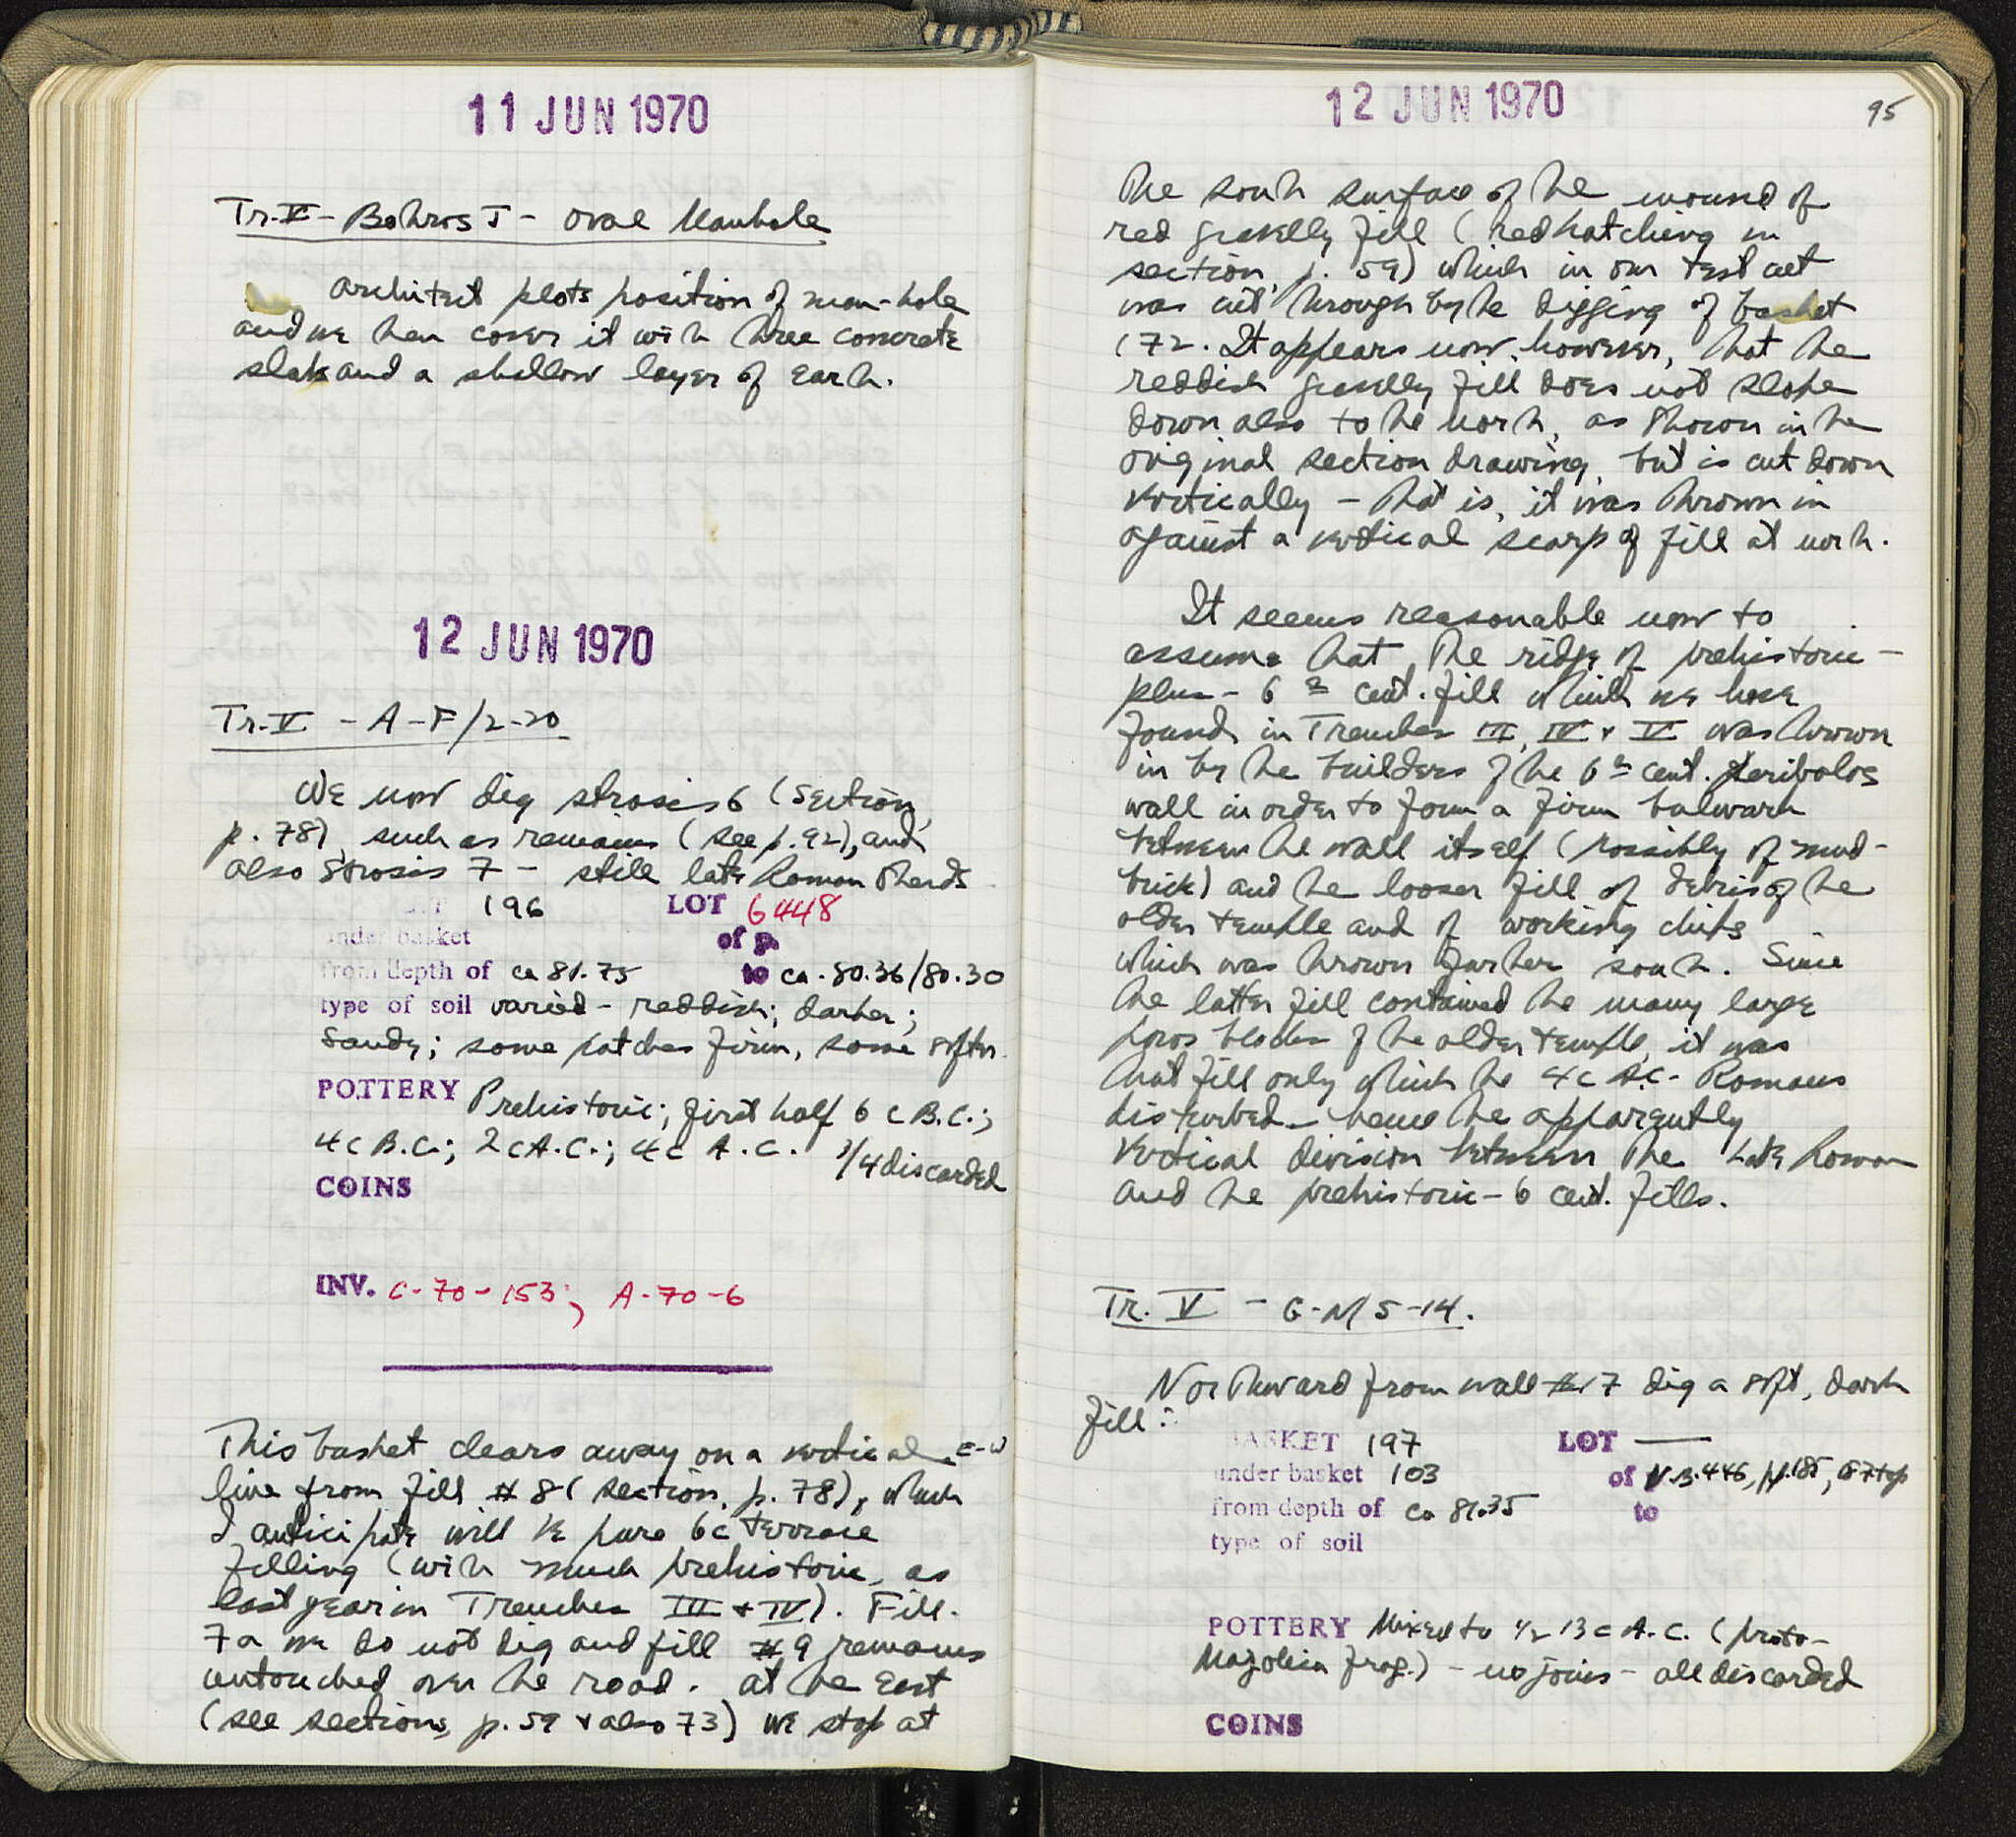 11 JUN 1970
Tr. V - Bothros I - oval Manhole
Architect plots position of man-hole
and we then cover it with three concrete
slabs and a shallow layer of earth.
12 JUN 1970
Tr. V - A-F/2-20
We now dig strosis 6 (section,
p. 78), such as remains (see p. 92), and
also strosis 7 - still late Roman sherds
196 LOT 6448
under basket of p.
from depth of ca 81.75 to ca. 80.36/80.30
type of soil varied - reddish; darker;
sandy; some patches firm, some softer.
POTTERY Prehistoric; first half 6 c B.C.;
4 c B.C.; 2 c A.C.; 4 c A.C. 3/4 discarded
COINS
INV. C-70-153; A-70-6
This basket clears away on a vertical E-W
line from fill #8 (section, p. 78), which
I anticipate will be pure 6c terrace
filling (with much prehistoric, as
last year in Trenches III + IV). Fill
7a we do not dig and fill #9 remains
untouched over the road. At the East
(see sections, p. 59 + also 73) we stop at
12 JUN 1970
95
the south surface of the mound of
red gravelly fill (red hatching in
section, p. 59) which in our test cut
was cut through by the digging of basket
172. It appears now, however, that the
reddish gravelly fill does not slope
down also to the north, as shown in the
original section drawing, but is cut down
vertically - that is, it was thrown in
against a vertical scarp of fill at north.
It seems reasonable now to
assume that the ridge of prehistoric-
plus-6th cent. fill which we have
found in Trenches III, IV + V was thrown
in by the builders of the 6th cent. peribolos
wall in order to form a firm bulwark
between the wall itself (possibly of mud-
brick) and the looser fill of debris of the
older temple and of working chips
which was thrown farther south. Since
the latter fill contained the many large
poros blocks of the older temple, it was
that fill only which the 4c A.C. Romans
disturbed - hence the apparently
vertical division between the Late Roman
and the prehistoric-6 cent. fills.
Tr. V - G-N/5-14.
Northward from wall 7 dig a soft, dark
fill:
BASKET 197 LOT —
under basket 103 of N.B. 446, p. 185, G-7 top
from depth of ca 81.35 to
type of soil
POTTERY Mixed to 1/2 13 c A.C. (proto-
Majolica frag.) - no joins - all discarded
COINS